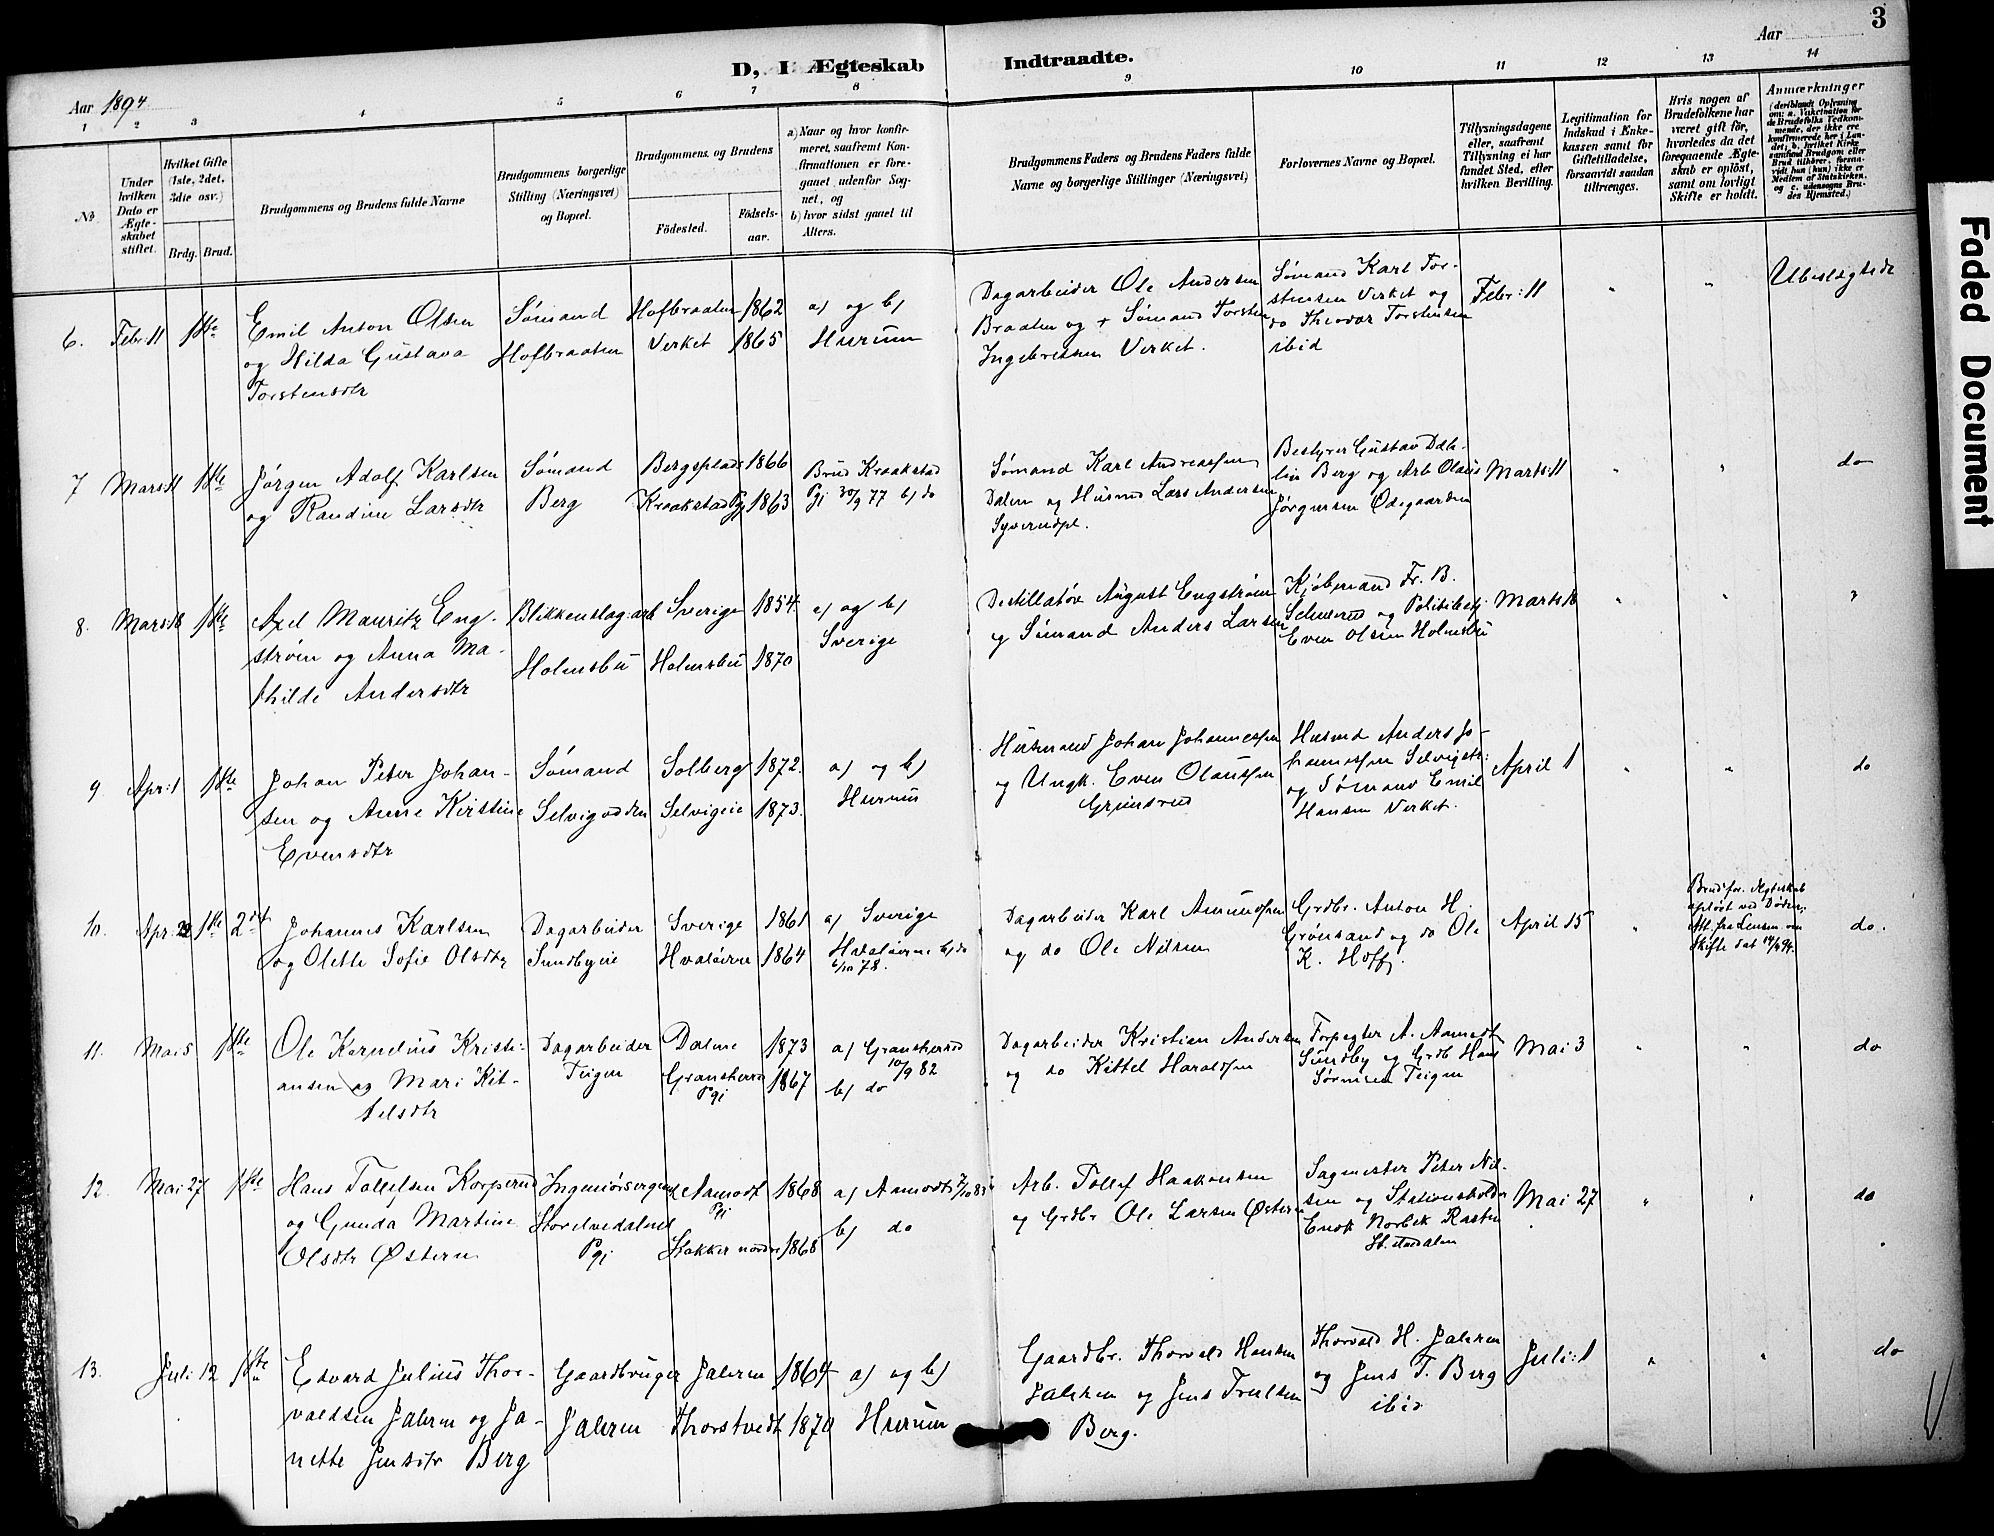 3
Aar
D, I Ægteskab Indtraadte.
Aar 1894
1 2 3 4 5 6 7 8 9 10 11 12 13 14
No.
Under hvilken Dato er Ægteskabet stiftet.
Hvilket Gifte (1ste, 2det, 3die osv.)
Brdg. Brud.
Brudgommens og Brudens fulde Navne
Brudgommens borgerlige Stilling (Næringsvei) og Bopæl.
Brudgommens og Brudens
Fødested.
Fødselsaar.
a) Naar og hvor konfirmeret, saafremt Konfirmationen er foregaaet udenfor Sognet, og
b) hvor sidst gaaet til Alters.
Brudgommens Faders og Brudens Faders fulde Navne og borgerlige Stillinger (Næringsvei)
Forlovernes Navne og Bopæl.
Tillysningsdagene eller, saafremt Tillysning ei har fundet Sted, efter hvilken Bevilling.
Legitimation for Indskud i Enkekassen samt for Giftetilladelse, forsaavidt saadan tiltrenges.
Hvis nogen af Brudefolkene har været gift før, hvorledes da det foregaaende Ægteskab er opløst, samt om lovligt Skifte er holdt.
Anmærkninger
(deriblandt Oplysning om: a. Vaccination for de Brudefolks Vedkommende, der ikke ere konfirmerede her i Landet; b. hvilket Kirkesamfund Brudgom eller Brud tilhører, forsaavidt han (hun) ikke er Medlem af Statskirken, og c. udensogns Brudes Hjemsted.)
6. Febr: 11 1ste
Emil Anton Olsen
og Hilda Gustava
Torstensdtr
Sømand
Hofbraaten
Hofbraaten 1862
Verket 1865
a) og b)
Hurum
Dagarbeider Ole Andersen
Braaten og + Sømand Torsten
Ingebretsen Verket.
Sømand Karl Tor-
stensen Verket og
do Theodor Torstensen
ibid
Febr: 11 " " Ubeslægtede
7 Mars 11 1ste
Jørgen Adolf Karlsen
og Randine Larsdtr
Sømand
Berg
Bergsplads 1866
Kraakstad Pgj 1863
Brud Kraakstad
Pgj 30/9 77 b) do
Sømand Karl Andreassen
Dalen og Husmd Lars Andersen
Syverudpl.
Bestyrer Gustav Dah-
lin Berg og Arb Olaus
Jørgensen Ødegaarden
Marts 11 " " do
8. Mars 18 1ste
Axel Mauritz Eng-
strøm og Anna Ma-
thilde Andersdtr
Blikkenslag.arb
Holmsbu
Sverige 1854
Holmsbu 1870
a) og b)
Sverige
Destillatør August Engstrøm
og Sømand Anders Larsen
Kjøbmand Fr. B.
og Politibetj.
Even Olsen Holmsbu
Marts 18 " " "
9. Apr: 1 1ste
Johan Peter Johan-
sen og Anne Kirstine
Evensdtr
Sømand
Selvigodden
Solberg 1872.
Selvigeie 1873.
a) og b)
Hurum
Husmand Johan Johannessen
og Ungk. Even Olaussen
Grimsrud
Husmd Anders Jo-
hannessen Selvigstr:
og Sømand Emil
Hansen Verket.
April 1 " " do
10. Apr: 22 1ste 2det
Johannes Karlsen
og Olette Sofie Olsdtr
Dagarbeider
Sundbyeie
Sverige 1861
Hvaløerne 1864
a) Sverige
Hvaløerne b) do
6/10 78.
Dagarbeider Karl Amundsen
og do Ole Nilsen
Grdbr. Anton H.
Grønsand og do Ole
K. Hoff.
April 15 "
Brud for. Ægteskab
opløst ved Døden,
Att. fra Lensm. om
Skifte dat 14/4 94.
do.
11. Mai 5 1ste
Ole Kornelius Kristi-
ansen og Mari Kit-
telsdtr
Dagarbeider
Teigen
Dalene 1873
Gransherred Pgj 1867
a) Gransherred
10/9 82
b) do
Dagarbeider Kristian Andersen
og do Kittel Haraldsen
Forpagter A. Aamodt
Sundby og Grdb Hans
Sørensen Teigen
Mai 3 " " do
12. Mai 27 1ste
Hans Tollefsen Korperud
og Gunda Martine
Olsdtr Østern
Storelvedalens
Pgj
Aamodt Pgj 1868
Stokker nordre 1868
a) Aamodt
b) do
Arb. Tollef Haakonsen
og Grdbr Ole Larsen Østern
Sagmester Peter Nil-
sen og Stationsholder
Enok Norbek Rasten
St. elvedalen
Mai 27 " " do
13. Juli 12 1ste
Edvard Julius Thor-
valdsen Jahren og Ja-
nette Jensdtr Berg
Gaardbruger
Jahren
Jahren 1864
Thorstvedt 1870
a) og b)
Hurum
Gaardbr. Thorvald Hansen
Jahren og Jens Trulsen
Berg.
Thorvald H. Jahren
og Jens T. Berg
ibid
Juli: 1 " " do
Faded Document